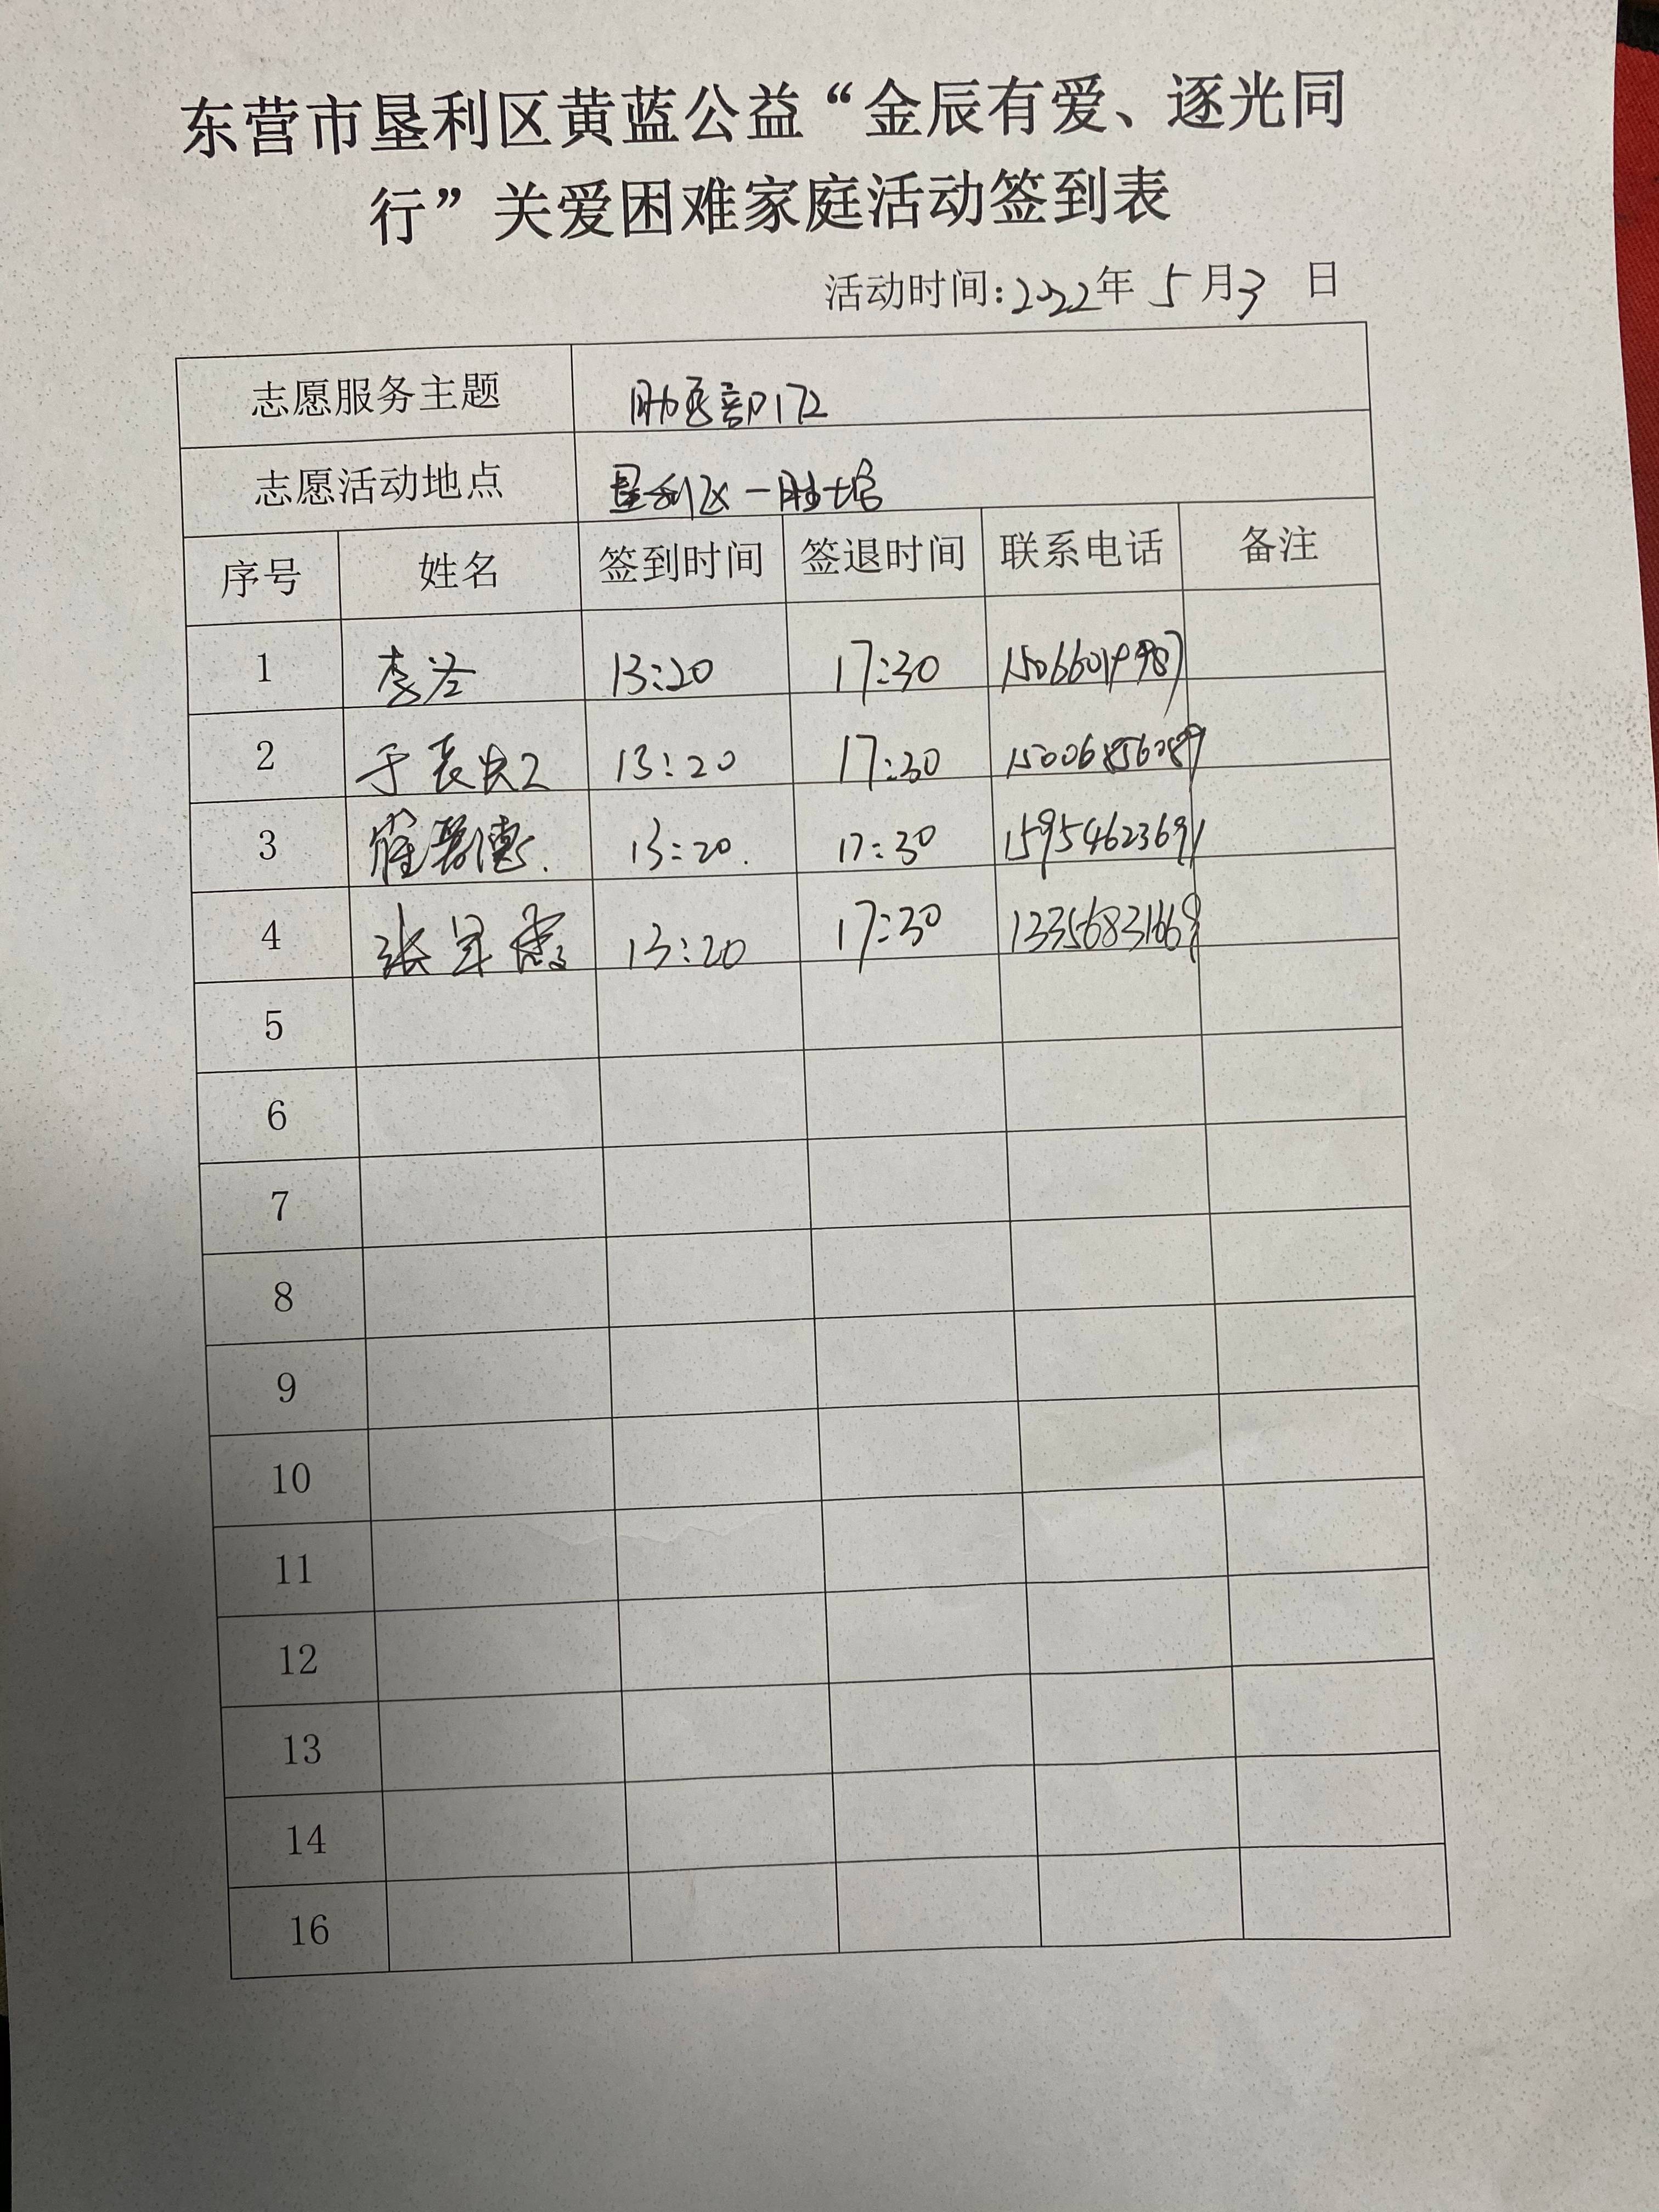 东营市垦利区黄蓝公益“金辰有爱、逐光同
行”关爱困难家庭活动签到表
活动时间:2022年 5月3 日
志愿服务主题 助医部172
志愿活动地点 垦利区一胜坨
序号 姓名 签到时间 签退时间 联系电话 备注
1 李 13:20 17:30
2 于 13:20 17:30
3 崔 德 13:20 17:30 15954623691
4 张 霞 13:20 17:30 13356831669
5
6
7
8
9
10
11
12
13
14
16